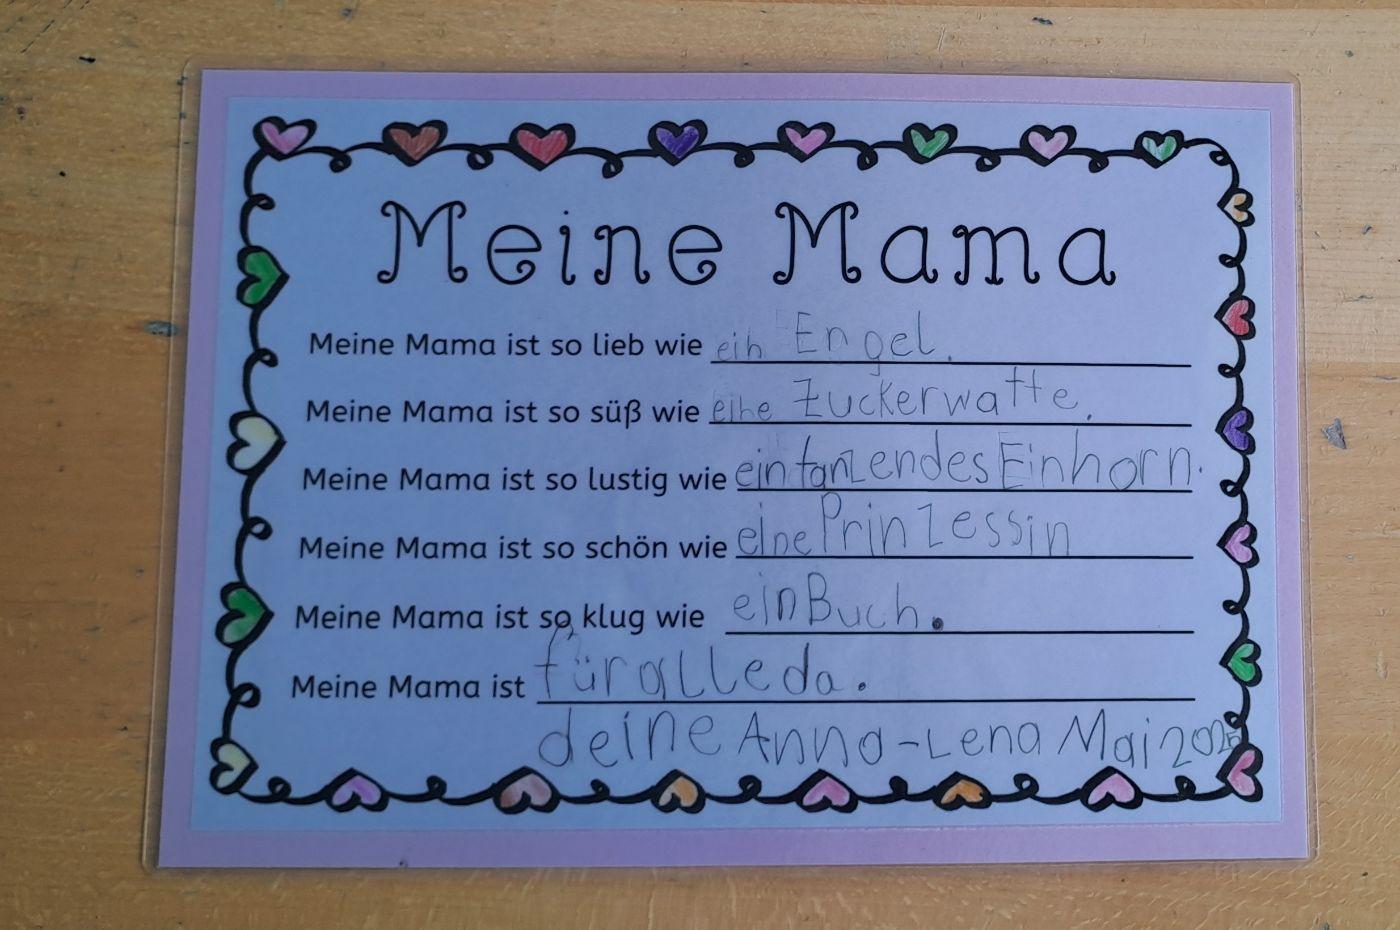 Meine Mama
Meine Mama ist so lieb wie ein Engel.
Meine Mama ist so süß wie eine Zuckerwatte.
Meine Mama ist so lustig wie ein tanzendes Einhorn.
Meine Mama ist so schön wie eine Prinzessin
Meine Mama ist so klug wie ein Buch.
Meine Mama ist für alle da.
deine Anna-Lena Mai